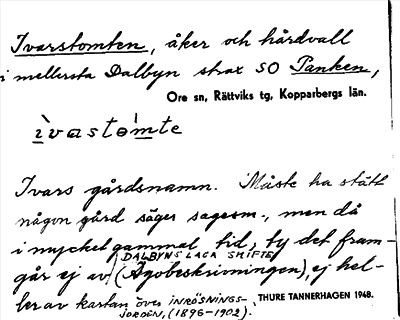 Ivarstomten, åker och hårdvall
i mellersta Dalbyn strax SO Panken,
Ore sn, Rättviks tg, Kopparbergs län.
ìvastòmte
Ivars gårdsnamn. Måste ha stått
någon gård säger sagesm., men då
i mycket gammal tid, ty det fram-
DALBYNS LAGA SKIFTE
går ej av (Ägobeskrivningen), ej hel-
ler av kartan över INRÖSNINGS- THURE TANNERHAGEN 1948.
JORDEN, (1896-1902).